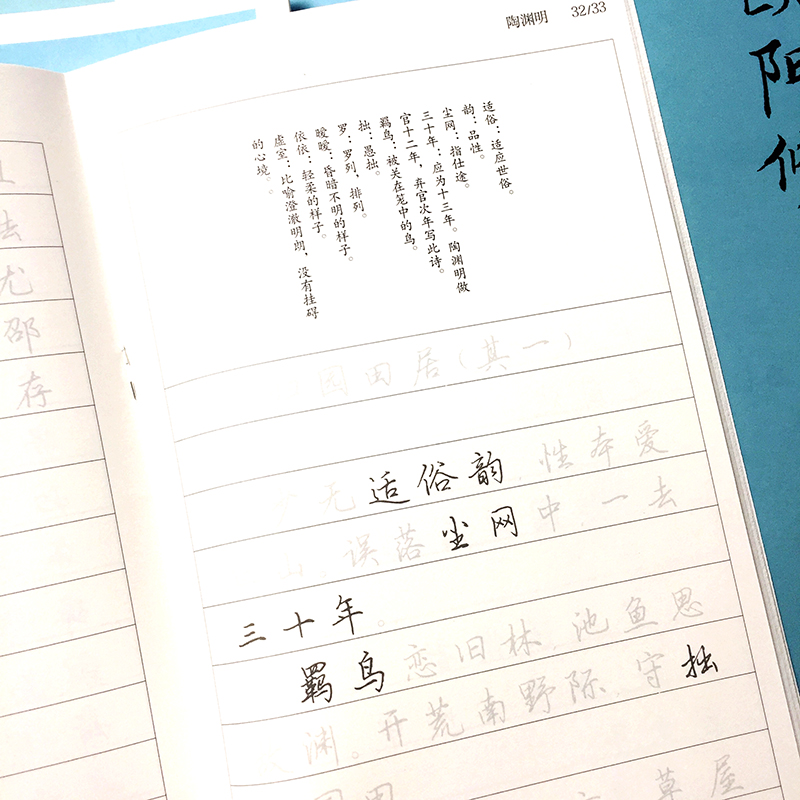 陶渊明 32/33
适俗：适应世俗。
韵：品性。
尘网：指仕途。
三十年：应为十三年。陶渊明做
官十二年，弃官次年写此诗。
羁鸟：被关在笼中的鸟。
拙：愚拙。
罗：罗列、排列。
暧暧：昏暗不明的样子。
依依：轻柔的样子。
虚室：比喻澄澈明朗，没有挂碍
的心境。
园田居（其一）
无适俗韵，性本爱
误落尘网中，一去
三十年。
羁鸟恋旧林，池鱼思
渊。开荒南野际，守拙
园田 草屋
尤
邵
存
阳